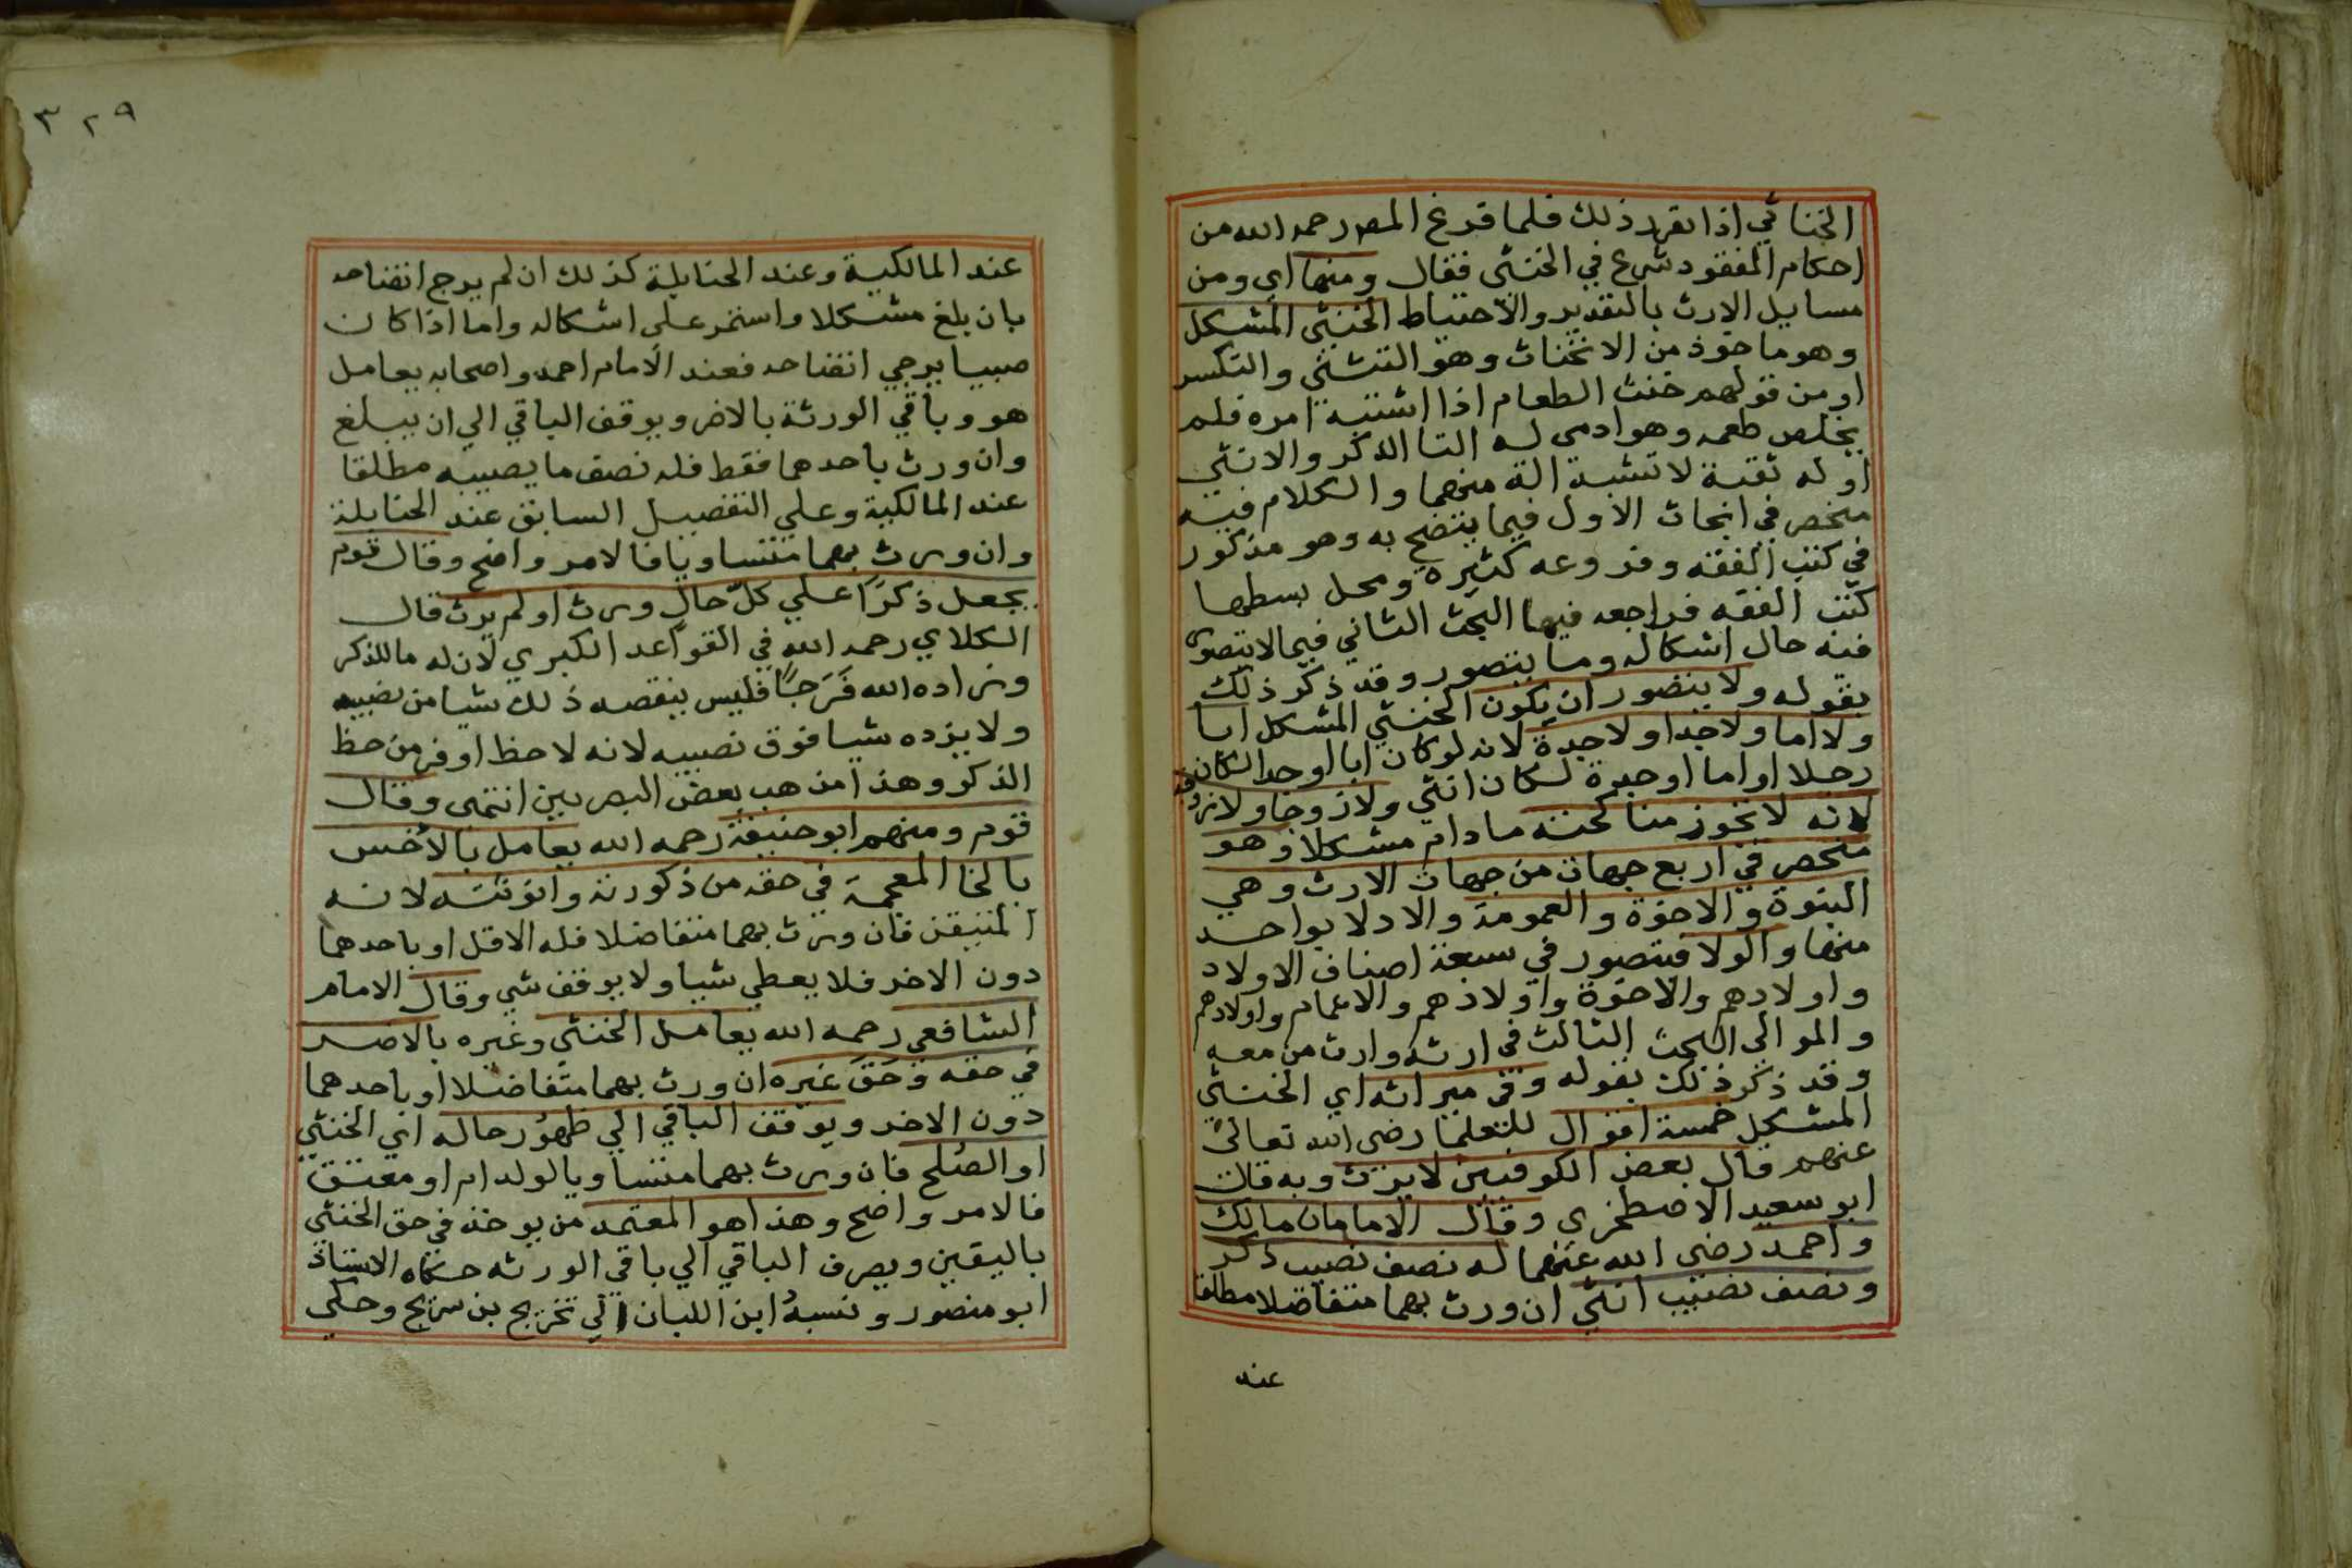 الخناثي اذا تقرر ذلك فلما فرغ المصر رحمه الله من
احكام المفقود شرع في الخنثى فقال ومنها اي ومن
مسايل الارث بالتقدير والاحتياط الخنثى المشكل
وهو ماخوذ من الانخناث وهو التثني والتكسر
او من قولهم خنث الطعام اذا اشتبه امره فلم
يخلص طعمه وهو ادمي له التا الذكر والانثي
او له ثقبة لا تشبه الة منهما والكلام فيه
منحصر في ابحاث الاول فيما يتضح به وهو مذكور
في كتب الفقه وفروعه كثيرة ومحل بسطها
كتب الفقه فراجعه فيها البحث الثاني فيما لا يتصور
فيه حال اشكاله وما يتصور وقد ذكر ذلك
بقوله ولا يتصور ان يكون الخنثي المشكل ابا
ولا اما ولا جدا ولا جدة لانه لو كان ابا او جدا لكان
رجلا او اما او جدة لكان انثي ولا زوجا ولا زوجة
لانه لا تجوز مناكحته ما دام مشكلا وهو
منحصر في اربع جهات من جهات الارث وهي
البنوة والاخوة والعمومة والادلا بواحد
منها والولا فيتصور في سبعة اصناف الاولاد
واولادهم والاخوة واولادهم والاعمام واولادهم
والموالى البحث الثالث في ارثه وارث من معه
وقد ذكر ذلك بقوله وفي ميراثه اي الخنثي
المشكل خمسة اقوال للعلما رضي الله تعالى
عنهم قال بعض الكوفيين لا يرث وبه قال
ابو سعيد الاصطخري وقال الامامان مالك
واحمد رضى الله عنهما له نصف نصيب ذكر
ونصف نصيب انثي ان ورث بهما متفاضلا مطلقا
عند
٣٢٩
عند المالكية وعند الحنابلة كذلك ان لم يرج اتضاحه
بان بلغ مشكلا واستمر على اشكاله واما اذا كان
صبيا يرجي اتضاحه فعند الامام احمد واصحابه يعامل
هو وباقي الورثة بالاضر ويوقف الباقي الي ان يبلغ
وان ورث باحدهما فقط فله نصف ما يصيبه مطلقا
عند المالكية وعلي التفصيل السابق عند الحنابلة
وان ورث بهما متساويا فالامر واضح وقال قوم
يجعل ذكرا علي كل حال ورث او لم يرث قال
الكلاي رحمه الله في القواعد الكبري لان له ما للذكر
وزاده الله فرجا فليس ينقصه ذلك شيا من نصيبه
ولا يزده شيا فوق نصيبه لانه لا حظ اوفر من حظ
الذكر وهذا مذهب بعض البصريين انتهى وقال
قوم ومنهم ابو حنيفة رحمه الله يعامل بالاخس
بالخا المعجمة في حقه من ذكورته وانوثته لانه
المتيقن فان ورث بهما متفاضلا فله الاقل او باحدهما
دون الاخر فلا يعطي شيا ولا يوقف شي وقال الامام
الشافعي رحمه الله يعامل الخنثي وغيره بالاضر
في حقه وحق غيره ان ورث بهما متفاضلا او باحدهما
دون الاخر ويوقف الباقي الي ظهور حاله اي الخنثي
او الصلح فان ورث بهما متساويا لولد ام او معتق
فالامر واضح وهذا هو المعتمد من يوخذ في حق الخنثي
باليقين ويصرف الباقي الي باقي الورثه حكاه الاستاذ
ابو منصور ونسبه ابن اللبان الي تخريج بن سريج وحكي